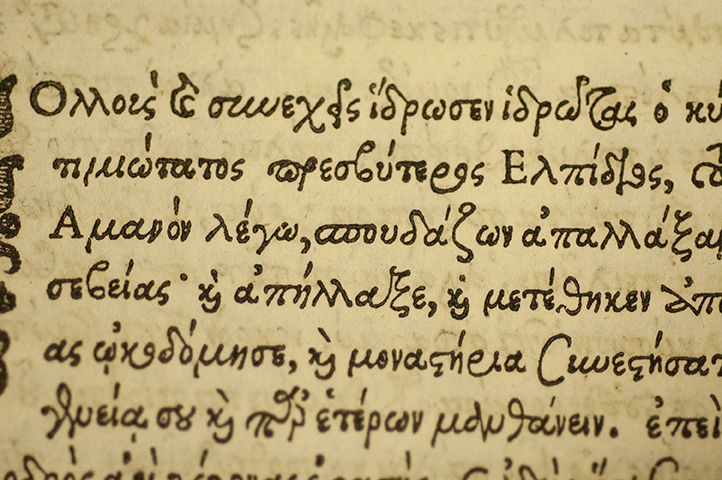 ολλοὺς καὶ συνεχεῖς ἵδρωσεν ἱδρῶτας ὁ κύ
τιμιώτατος πρεσβύτερος Ελπίδιος,
Αμανὸν λέγω, σπουδάζων ἀπαλλάξαι
σεβείας· καὶ ἀπήλλαξε, καὶ μετέθηκεν ἁπ
ας ᾠκοδόμησε, καὶ μοναστήρια συνεστήσατ
γενείᾳ σου καὶ παρ' ἑτέρων μανθάνειν. ἐπεὶ